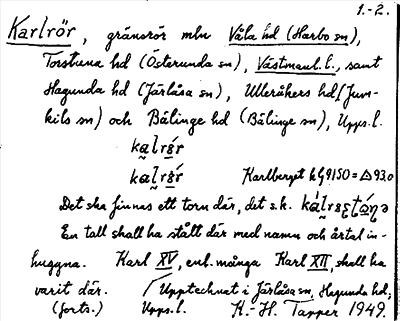 1.-2.
Karlrör, gränsrör mln Våla hd (Harbo sn),
Torstuna hd (Österunda sn), Västmanl. l., samt
Hagunda hd (Järlåsa sn), Ulleråkers hd (Jum-
kils sn) och Bälinge hd (Bälinge sn), Upps. l.
kalrør
kalrør Karlberget hG9150 = △93.0
Det ska finnas ett torn där, det s.k.
En tall skall ha stått där med namn och årtal in-
huggna. Karl XV, enl. många Karl XII, skall ha
varit där. / Upptecknat i Järlåsa sn, Hagunda hd,
(forts.) Upps. l. K.-H. Tapper 1949.